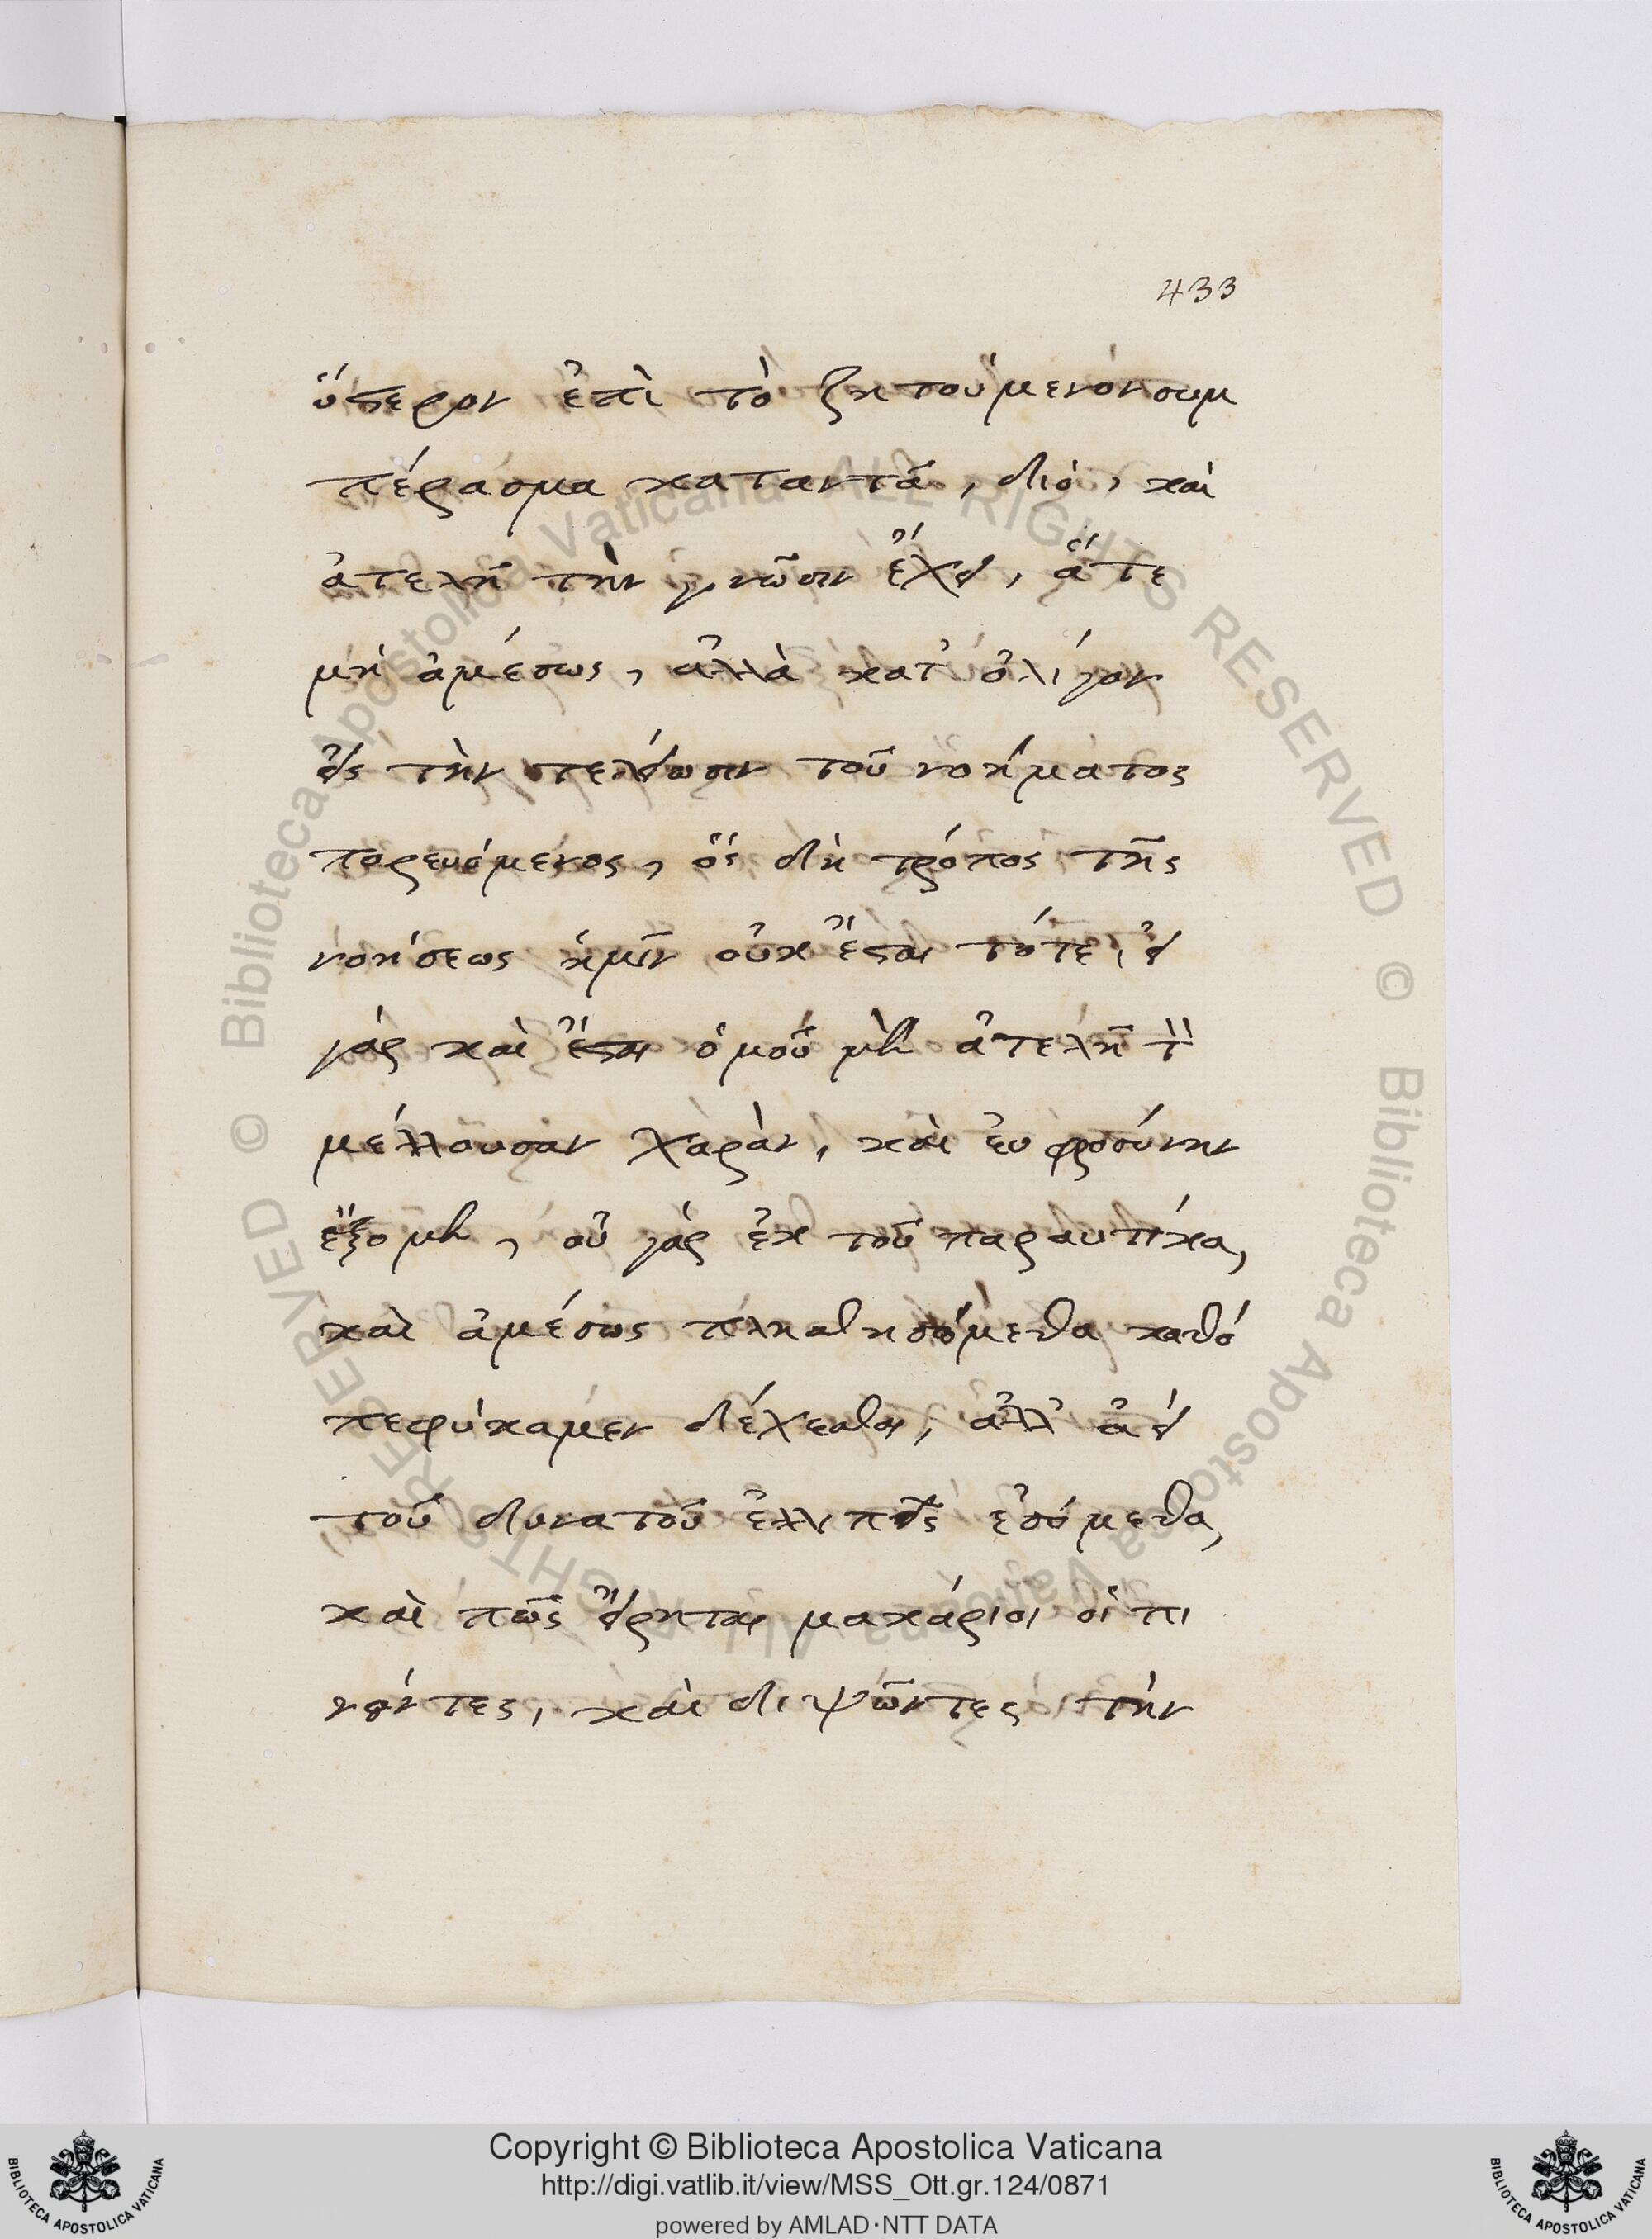 433
ὕστερον ἐπὶ τὸ ζητούμενον συμ
πέρασμα καταντᾶ, διὸ, καὶ
ἀτελῆ τὴν γνῶσιν ἔχει, ἅτε
μὴ ἀμέσως, ἀλλὰ κατ' ὀλίγον
εἰς τὴν τελείωσιν τοῦ νοήματος
πορευόμενος, ὅς δὴ τρόπος τῆς
νοήσεως ἡμῖν οὐκ ἔσται τότε, εἰ
γὰρ καὶ ἔσται ὁμοῦ μὲν ἀτελῆ τὴν
μέλλουσαν χαρὰν, καὶ εὐφροσύνην
ἕξομεν, οὐ γὰρ ἐκ τοῦ παραυτίκα,
καὶ ἀμέσως πλησθησόμεθα καθό
πεφύκαμεν δέχεσθαι, ἀλλ' ἀεὶ
τοῦ δυνατοῦ ἐλλιπεῖς ἐσόμεθα,
καὶ πῶς εἴρηται μακάριοι οἱ πι
νόντες, καὶ διψῶντες τὴν
Copyright © Biblioteca Apostolica Vaticana
http://digi.vatlib.it/view/MSS_Ott.gr.124/0871
powered by AMLAD·NTT DATA
BIBLIOTECA APOSTOLICA VATICANA
BIBLIOTECA APOSTOLICA VATICANA
© Biblioteca Apostolica Vaticana ALL RIGHTS RESERVED
© Biblioteca Apostolica Vaticana ALL RIGHTS RESERVED